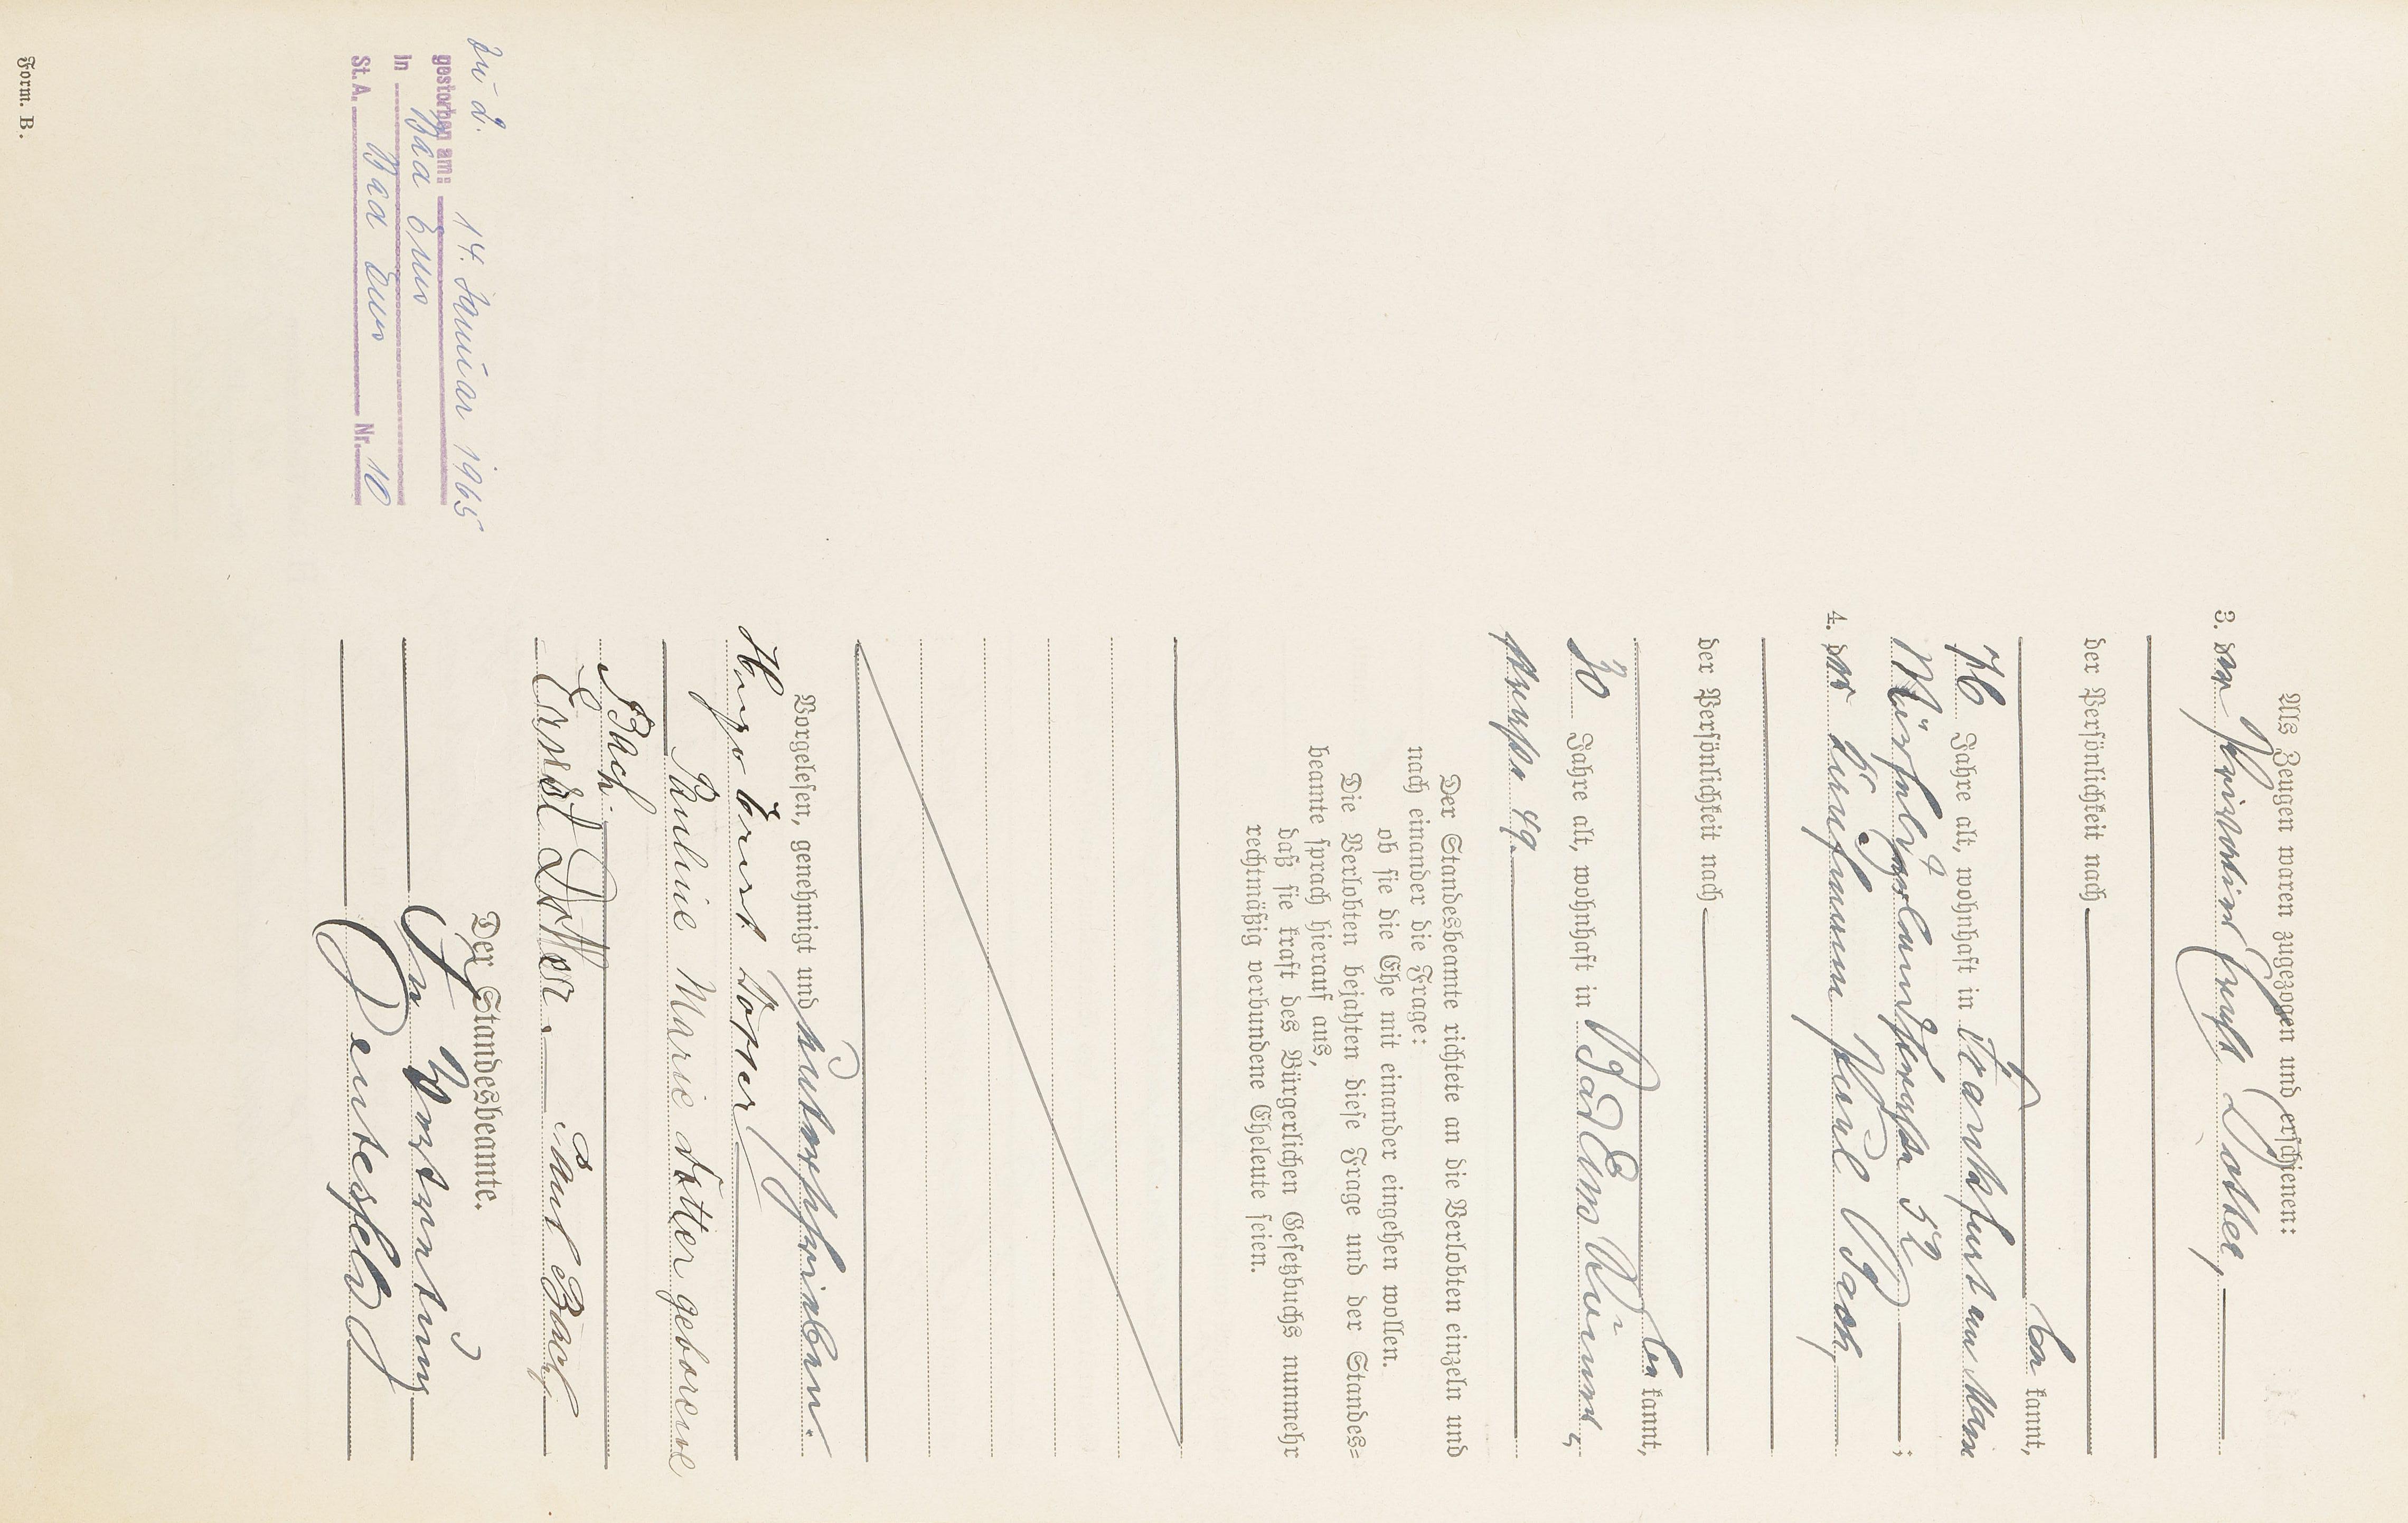 Als Zeugen waren zugezogen und erschienen:
3. der Privatier Ernst Dotter,
der Persönlichkeit nach
be kannt,
76 Jahre alt, wohnhaft in Frankfurt am Main
Mörfelderlandstraße 52
4. der Kaufmann Paul Bach,
der Persönlichkeit nach
be kannt,
30 Jahre alt, wohnhaft in Bad Ems, Römer,
straße 49.
Der Standesbeamte richtete an die Verlobten einzeln und
nach einander die Frage:
ob sie die Ehe mit einander eingehen wollen.
Die Verlobten bejahten diese Frage und der Standes=
beamte sprach hierauf aus,
daß sie kraft des Bürgerlichen Gesetzbuchs nunmehr
rechtmäßig verbundene Eheleute seien.
Vorgelesen, genehmigt und unterschrieben.
Hugo Ernst Dotter
Pauline Marie Dotter geborene
Bach.
Ernst Dotter. Paul Bach
Der Standesbeamte.
In Vertretung
Zu 2.
gestorben am: 14. Januar 1965
in Bad Ems
St. A. Bad Ems Nr. 10
Form. B.